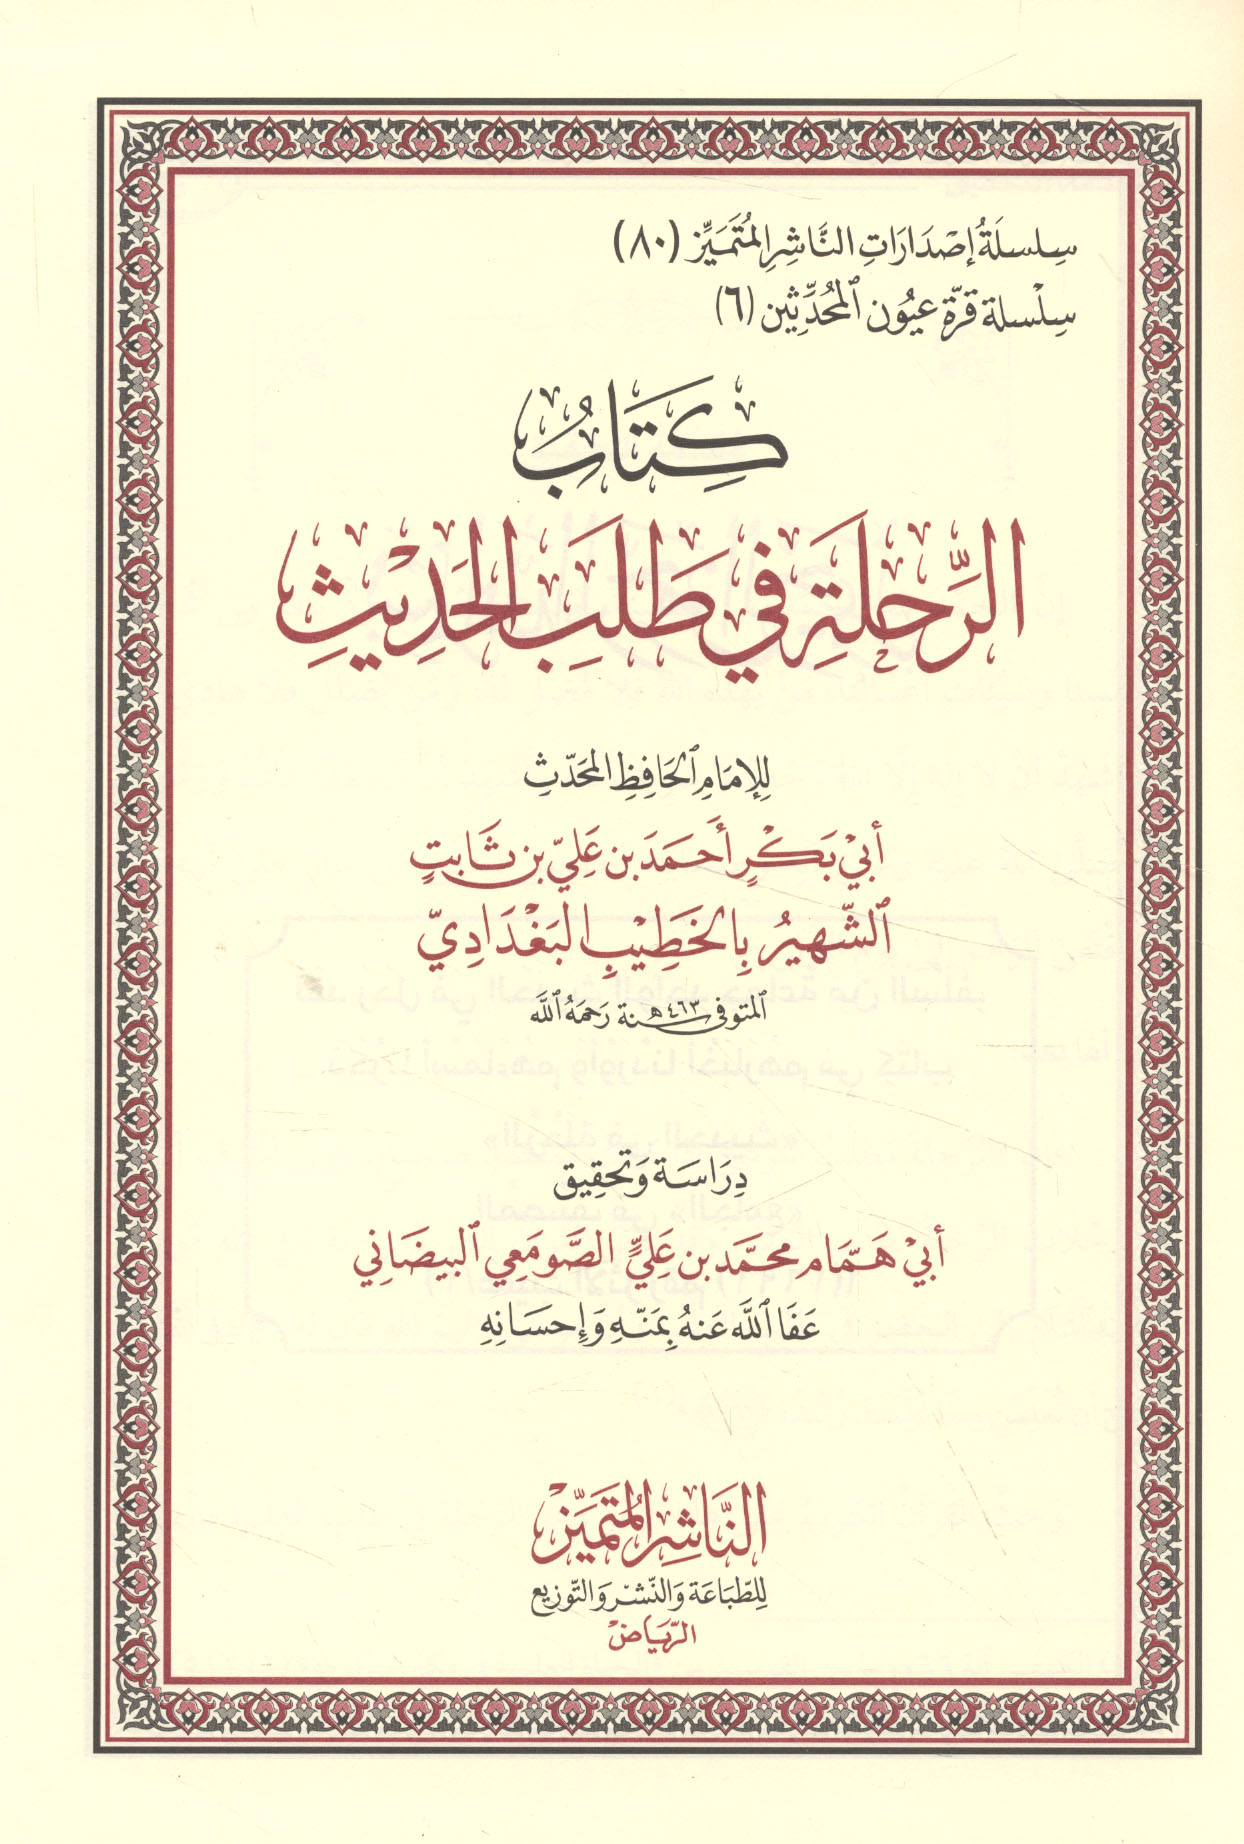 سِلسلَةُ إصْدَارَاتِ النَّاشِرِ المُتَمَيِّز (٨٠)
سِلْسلة قرّة عيُون المُحدِّثِين (٦)
كِتَابُ
الرِّحلَةِ في طَلَبِ الحَدِيْثِ
لِلإمَامِ الحَافِظِ المحَدّثِ
أبيْ بَكْرٍ أحَمَدَ بن عَلِيّ بن ثَابتٍ
الشّهيرُ بِالخَطِيْبِ البَغْدَادِيّ
المتوفى سنة ٤٦٣ھ رَحمَهُ اللَّه
دِرَاسَة وَتحقِيق
أبيْ هَمَّام محمَّد بن عَلِيٍّ الصَّومَعِي البيضَاني
عَفَا اللَّه عَنهُ بِمَنّهِ وَإحسَانِهِ
النَّاشِرُ المُتَمَيّزْ
لِلطّبَاعَة وَالنّشْر وَالتّوزيع
الرّيَاضْ